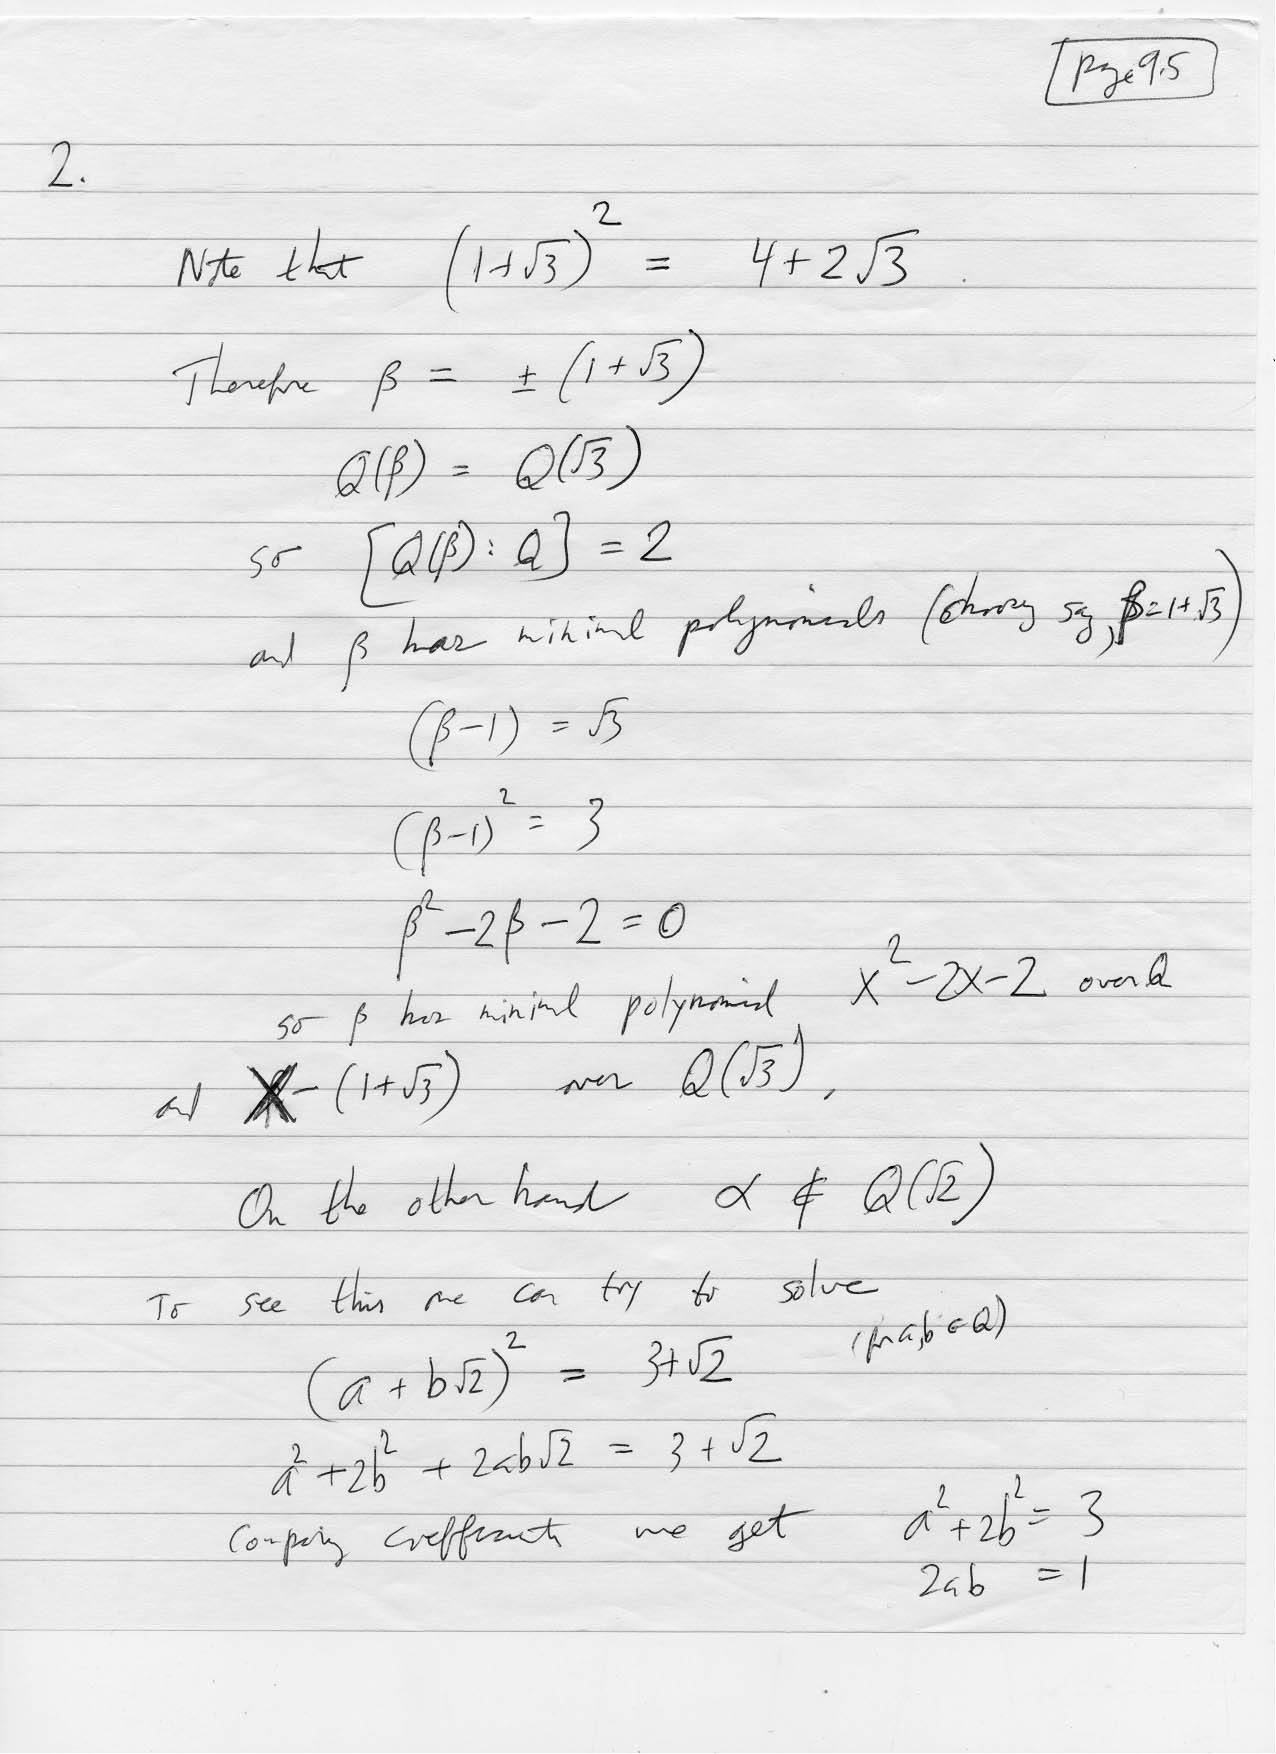 Page 9.5
2.
Note that (1+√3)² = 4+2√3.
Therefore β = ± (1+√3)
Q(β) = Q(√3)
so [Q(β) : Q] = 2
and β has minimal polynomials (choosing say, β=1+√3)
(β-1) = √3
(β-1)² = 3
β² - 2β - 2 = 0
so β has minimal polynomial x² - 2x - 2 over Q
and X - (1+√3) over Q(√3),
On the other hand α ∉ Q(√2)
To see this one can try to solve
(a + b√2)² = 3+√2 (for a,b ∈ Q)
a² + 2b² + 2ab√2 = 3 + √2
Comparing coefficients we get a² + 2b² = 3
2ab = 1